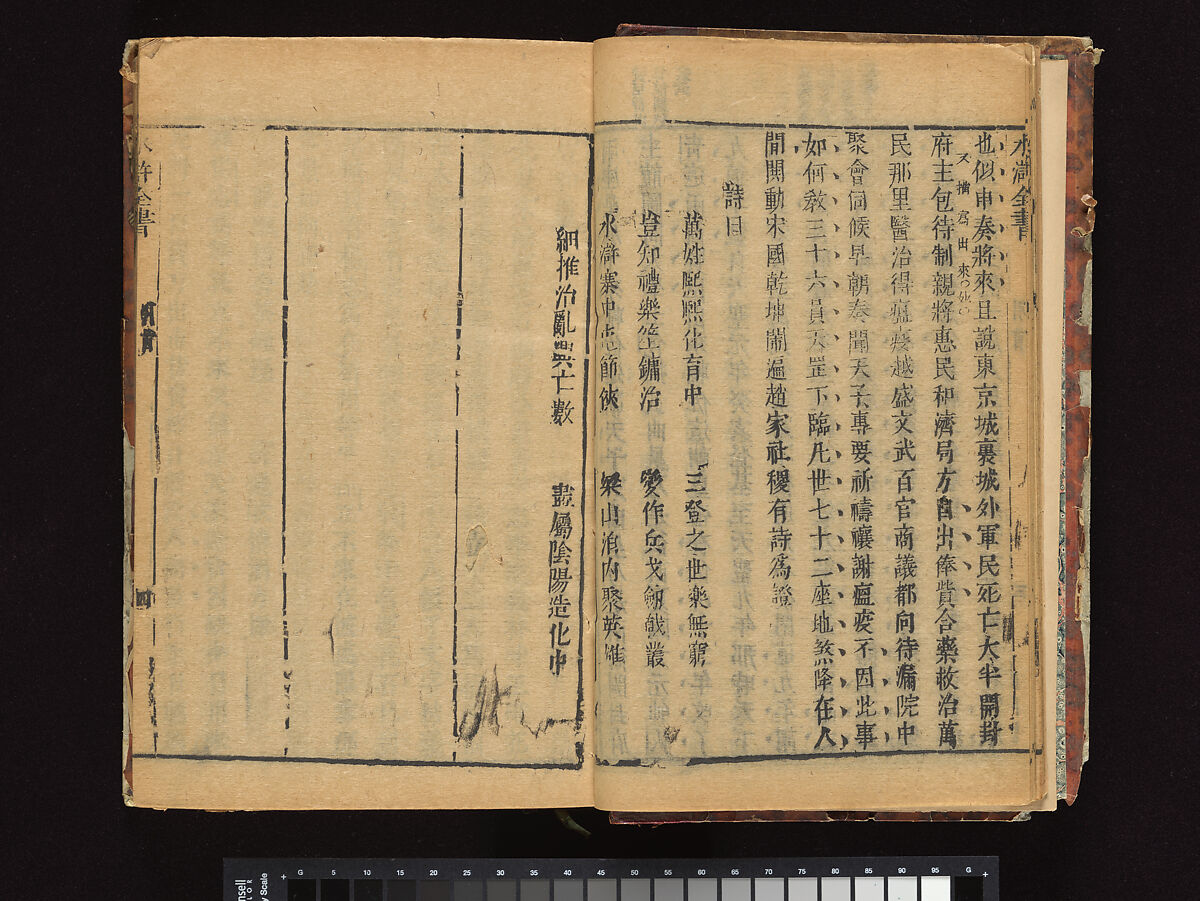 水滸全書
也似申奏將來且說東京城裏城外軍民死亡大半開封
又插爲由來
府主包待制親將惠民和濟局方自出俸貲合藥救治萬
民那里醫治得瘟疫越盛文武百官商議都向待漏院中
聚會伺候早朝奏聞天子專要祈禱禳謝瘟疫不因此事
如何教三十六員天罡下臨凡世七十二座地煞降在人
間鬨動宋國乾坤鬧遍趙家社稷有詩爲證
詩曰
萬姓熙熙化育中 三登之世樂無窮
豈知禮樂笙鏞治 變作兵戈劒戟叢
水滸寨中忠節俠 梁山泊內聚英雄
細推治亂興亡數 盡屬陰陽造化中
水滸全書
引首
四
G 5 10 15 20 25 30 35 40 45 50 55 60 65 70 75 80 85 90 95 G